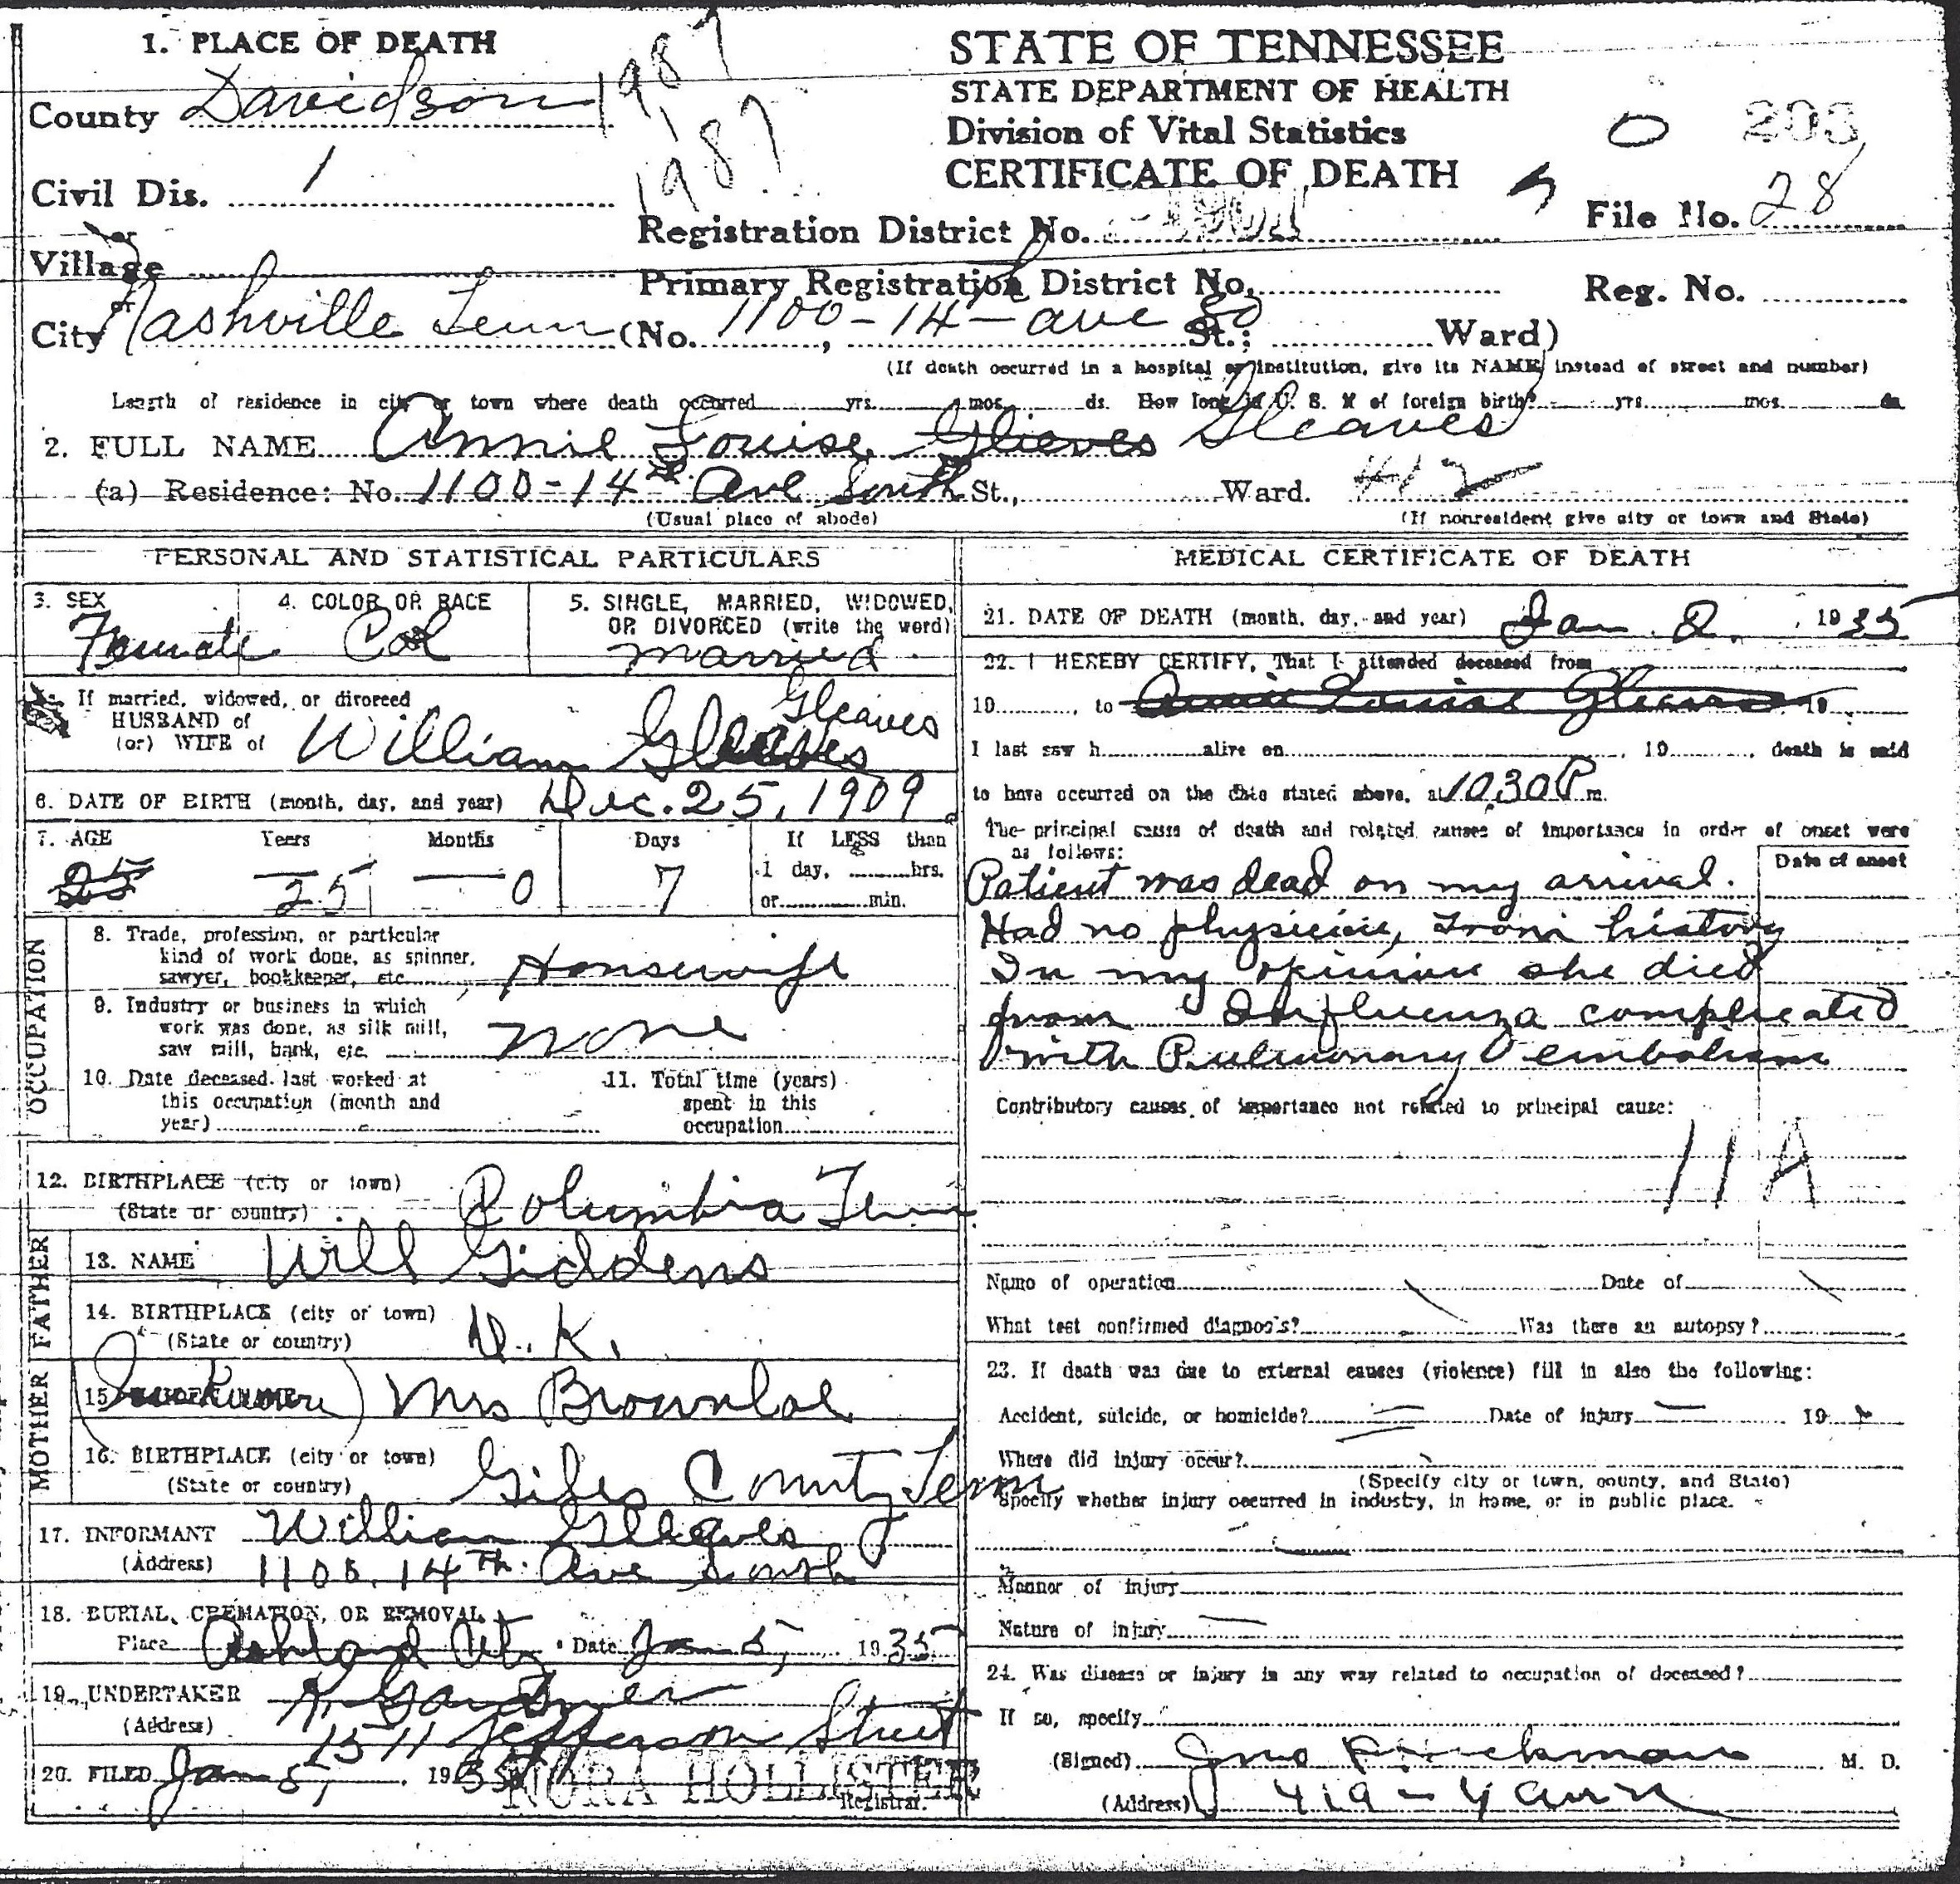 1. PLACE OF DEATH
County Davidson
1987
1987
Civil Dis. 1
or
Village
or
City Nashville Tenn (No. 1100 - 14th ave So St.; Ward)
STATE OF TENNESSEE
STATE DEPARTMENT OF HEALTH
Division of Vital Statistics
CERTIFICATE OF DEATH
0 203
File No. 28
Registration District No. 1901
Primary Registration District No.
Reg. No.
(If death occurred in a hospital or institution, give its NAME instead of street and number)
Length of residence in city or town where death occurred yrs. mos. ds. How long in U. S. if of foreign birth? yrs. mos. ds.
2. FULL NAME Annie Louise Glieves Gleaves
(a) Residence: No. 1100 - 14th Ave South St., Ward. 412
(Usual place of abode) (If nonresident give city or town and State)
PERSONAL AND STATISTICAL PARTICULARS
3. SEX Female
4. COLOR OR RACE Col
5. SINGLE, MARRIED, WIDOWED, OR DIVORCED (write the word) married
If married, widowed, or divorced
HUSBAND of
(or) WIFE of William Gleaves Gleaves
6. DATE OF BIRTH (month, day, and year) Dec. 25, 1909
7. AGE Years Months Days If LESS than
25 25 0 7 1 day, hrs.
or min.
OCCUPATION
8. Trade, profession, or particular
kind of work done, as spinner,
sawyer, bookkeeper, etc. Housewife
9. Industry or business in which
work was done, as silk mill,
saw mill, bank, etc. none
10. Date deceased last worked at
this occupation (month and
year)
11. Total time (years)
spent in this
occupation
12. BIRTHPLACE (city or town)
(State or country) Columbia Tenn
FATHER
13. NAME Will Giddens
14. BIRTHPLACE (city or town)
(State or country) D. K.
MOTHER
15. MAIDEN NAME Mrs Brownlow
16. BIRTHPLACE (city or town)
(State or country) Giles County Tenn
17. INFORMANT William Gleaves
(Address) 1100. 14th. Ave South
18. BURIAL, CREMATION, OR REMOVAL
Place Ashland City Date Jan 5, 1935
19. UNDERTAKER A. Gardner
(Address) 1511 Jefferson Street
20. FILED Jan 5, 1935 NORA HOLLISTER
Registrar.
MEDICAL CERTIFICATE OF DEATH
21. DATE OF DEATH (month, day, and year) Jan. 2. , 1935
22. I HEREBY CERTIFY, That I attended deceased from
19 , to Annie Louise Gleaves 19
I last saw h alive on , 19 , death is said
to have occurred on the date stated above, at 10.30 P m.
The principal cause of death and related causes of importance in order of onset were
as follows:
Date of onset
Patient was dead on my arrival.
Had no physician, From history
In my opinion she died
from Influenza complicated
with Pulmonary embolism
Contributory causes of importance not related to principal cause:
11A
Name of operation Date of
What test confirmed diagnosis? Was there an autopsy?
23. If death was due to external causes (violence) fill in also the following:
Accident, suicide, or homicide? Date of injury 19
Where did injury occur?
(Specify city or town, county, and State)
Specify whether injury occurred in industry, in home, or in public place.
Manner of injury
Nature of injury
24. Was disease or injury in any way related to occupation of deceased?
If so, specify
(Signed) Jno M. D.
(Address) 419 - 4